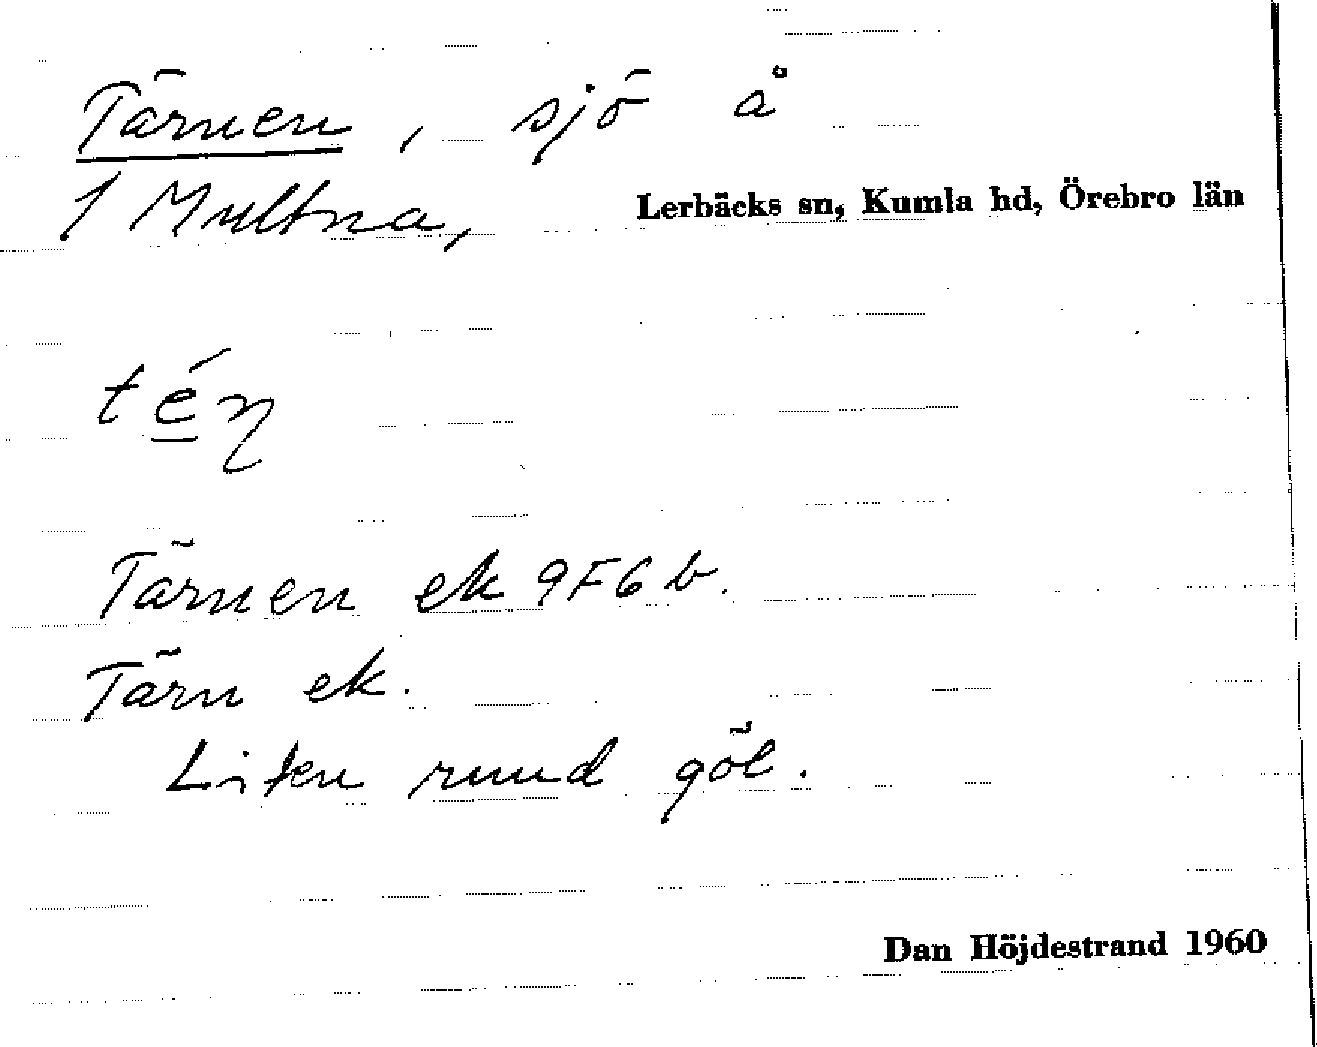 Tärnen, sjö å
1 Multna, Lerbäcks sn, Kumla hd, Örebro län
té̲ɳ
Tärnen ek 9F6b.
Tärn ek.
Liten rund göl.
Dan Höjdestrand 1960